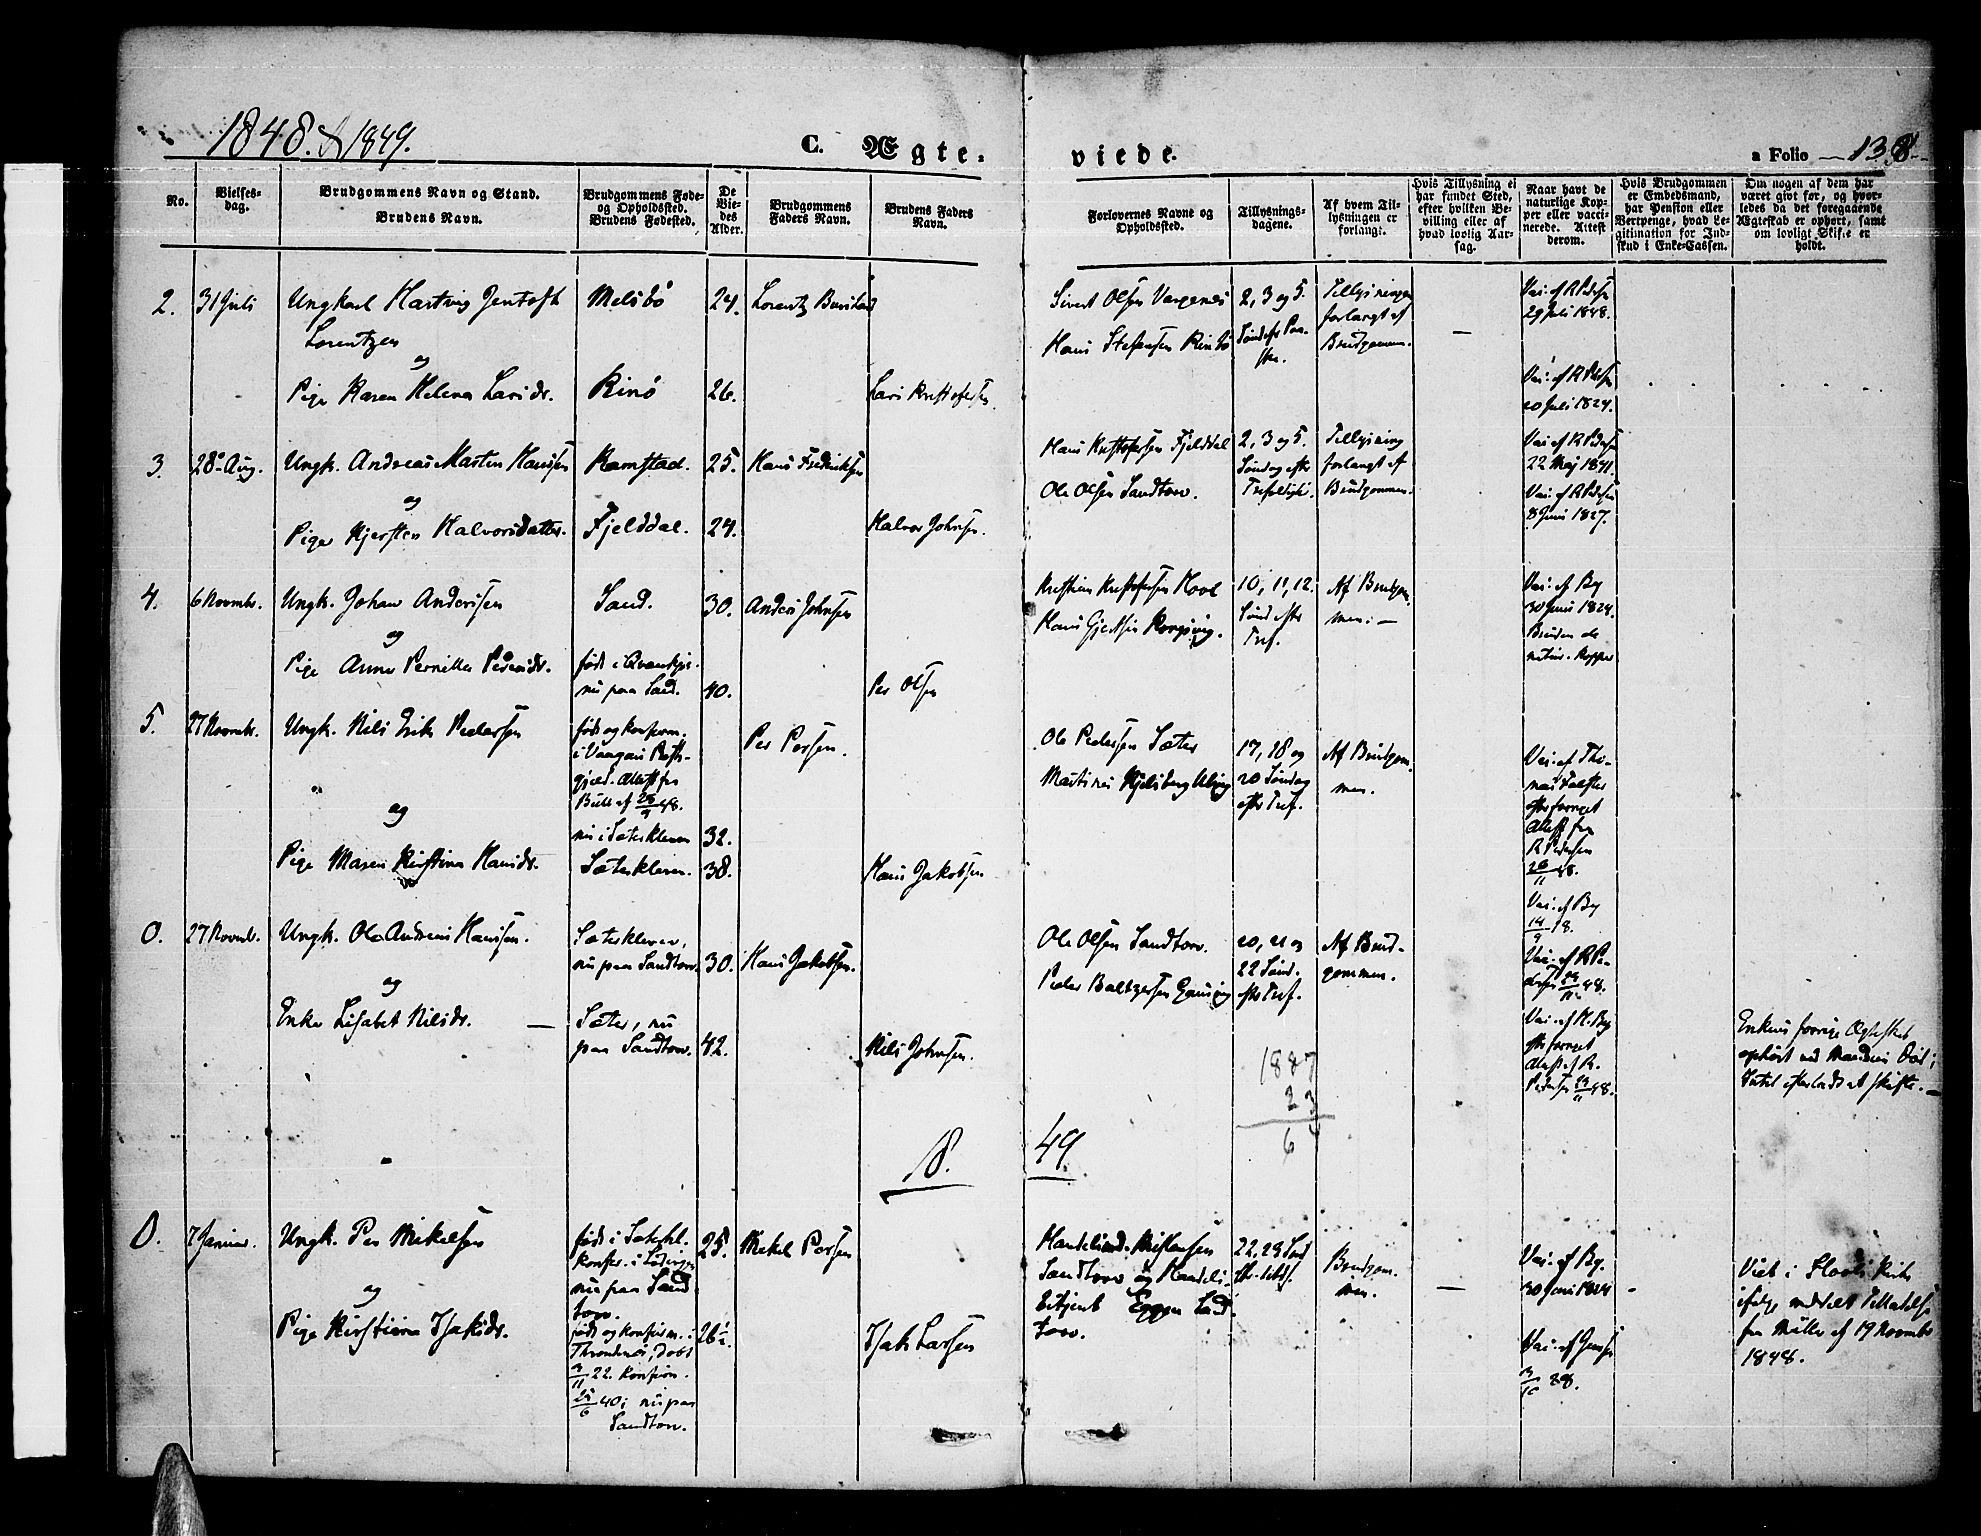 1848. & 1849.
C. Ægte-
viede.
a Folio 138
No.
Vielses-
dag.
Brudgommens Navn og Stand.
Brudens Navn.
Brudgommens Føde-
og Opholdssted.
Brudens Fødested.
De
Vie-
des
Alder.
Brudgommens
Faders Navn.
Brudens Faders
Navn.
Forlovernes Navne og
Opholdssted.
Tillysnings-
dagene.
Af hvem Til-
lysningen er
forlangt.
Hvis Tillysning ei
har fundet Sted,
efter hvilken Be-
villing eller af
hvad lovlig Aar-
sag.
Naar havt de
naturlige Kop-
per eller vacci-
nerede. Attest
derom.
Hvis Brudgommen
er Embedsmand,
har Pension eller
Vertpenge, hvad Le-
gitimation for Ind-
skud i Enke-Cassen.
Om nogen af dem har
været givt før, og hvor-
ledes da det foregaaende
Ægteskab er ophørt, samt
om lovligt Skifte er
holdt.
2.
31 Juli
Ungkarl Hartvig Jentoft
Lorentzen
og
Pige Karen Helena Larsdr.
Melsbø
Rinø
24.
26.
Lars Kristofersen
Sivert Olsen
Hans Stefensen Rinbø
2, 3 og 5.
Tillysningen
forlangt af
Brudgommen.
Vac. af R Pedersen
29 Juli 1848.
Vac. af R Pedersen
20 Juli 1824.
3.
28de Aug.
Ungk. Andreas Martin Hansen
og
Pige Kjersten Halvorsdatter.
Ramstad.
Fjelddal.
25.
24.
Hans Fredriksen
Halvor Johnsen.
Hans Kristofersen Fjelddal
Ole Olsen Sandtorv.
2, 3 og 5.
Søndag efter
Trefoldigh.
Tillysning
forlangt af
Brudgommen.
Vac. af R Pedersen
22 Maj 1841.
Vac. af R Pedersen
8 Juni 1827.
4.
6 Novmbr.
Ungk. Johan Andersen
og
Pige Anne Pernilla Persdr.
Sand.
født i Qvædfj.
nu paa Sand.
30.
40.
Anders Johnsen
Per Olsen
Kristian Kristofersen Hool
10, 11, 12.
Sønd efter
Tref.
Af Brudgom-
men. —
Vac. af By
30 Juni 1824.
Bruden de
natur. Kopper
5
27 Novmbr.
Ungk. Nils Erik Pedersen
og
Pige Maren Kirstina Hansdr.
født og konfirm.
i Vaagans Præst-
gjeld. Attest fra
Bull af 28/9 48.
nu i Sæterkleven
Sæterkleven.
32.
38.
Per Persen.
Hans Jakobsen
Ole Pedersen Sæter
17, 18 og
20 Søndag
efter Tref.
Af Brudgom-
men.
efter foreget
Attest fra
R Pedersen
26/11 48.
0.
27 Novmb.
Ungk. Ole Andreas Hansen.
og
Enke Lisabet Nilsdr. —
Sæterkleven,
nu paa Sandtorv.
Sæter, nu
paa Sandtorv.
30.
42.
Hans Jakobsen.
Nils Johnsen.
Ole Olsen Sandtorv.
Peder Baltzersen Gausvig
20, 21 og
22 Sønd.
efter Tref.
Af Brud-
gommen.
Vac. af By
14/9 18.
Vac. af R Pe-
dersen 29/11 48.
Enkens forrige Ægteskab
ophørt ved Mandens Død;
Intet efterladt at skifte. —
1887
23
6
18
49.
0.
7 Januar.
Ungk. Per Mikelsen
og
Pige Kirstina Isaksdr.
konfir. i Lødingen
nu paa Sand
torv.
født og konfirm. i
Throndenes, døbt
3/11 22. Konfirm.
28/6 40; nu paa
Sandtorv.
25.
26½.
Mikel Persen
Isak Larsen
Sandtorv og Handels-
betjent Eggen Sand
torv.
Brudgom-
men.
—
Vac. af By.
30 Juni 1824
Vac. af Jensen
3/10 38.
Viet i Hools Kirke
ifølge meddelt Tilladelse
fra Müller af 19 Novmbr
1848.